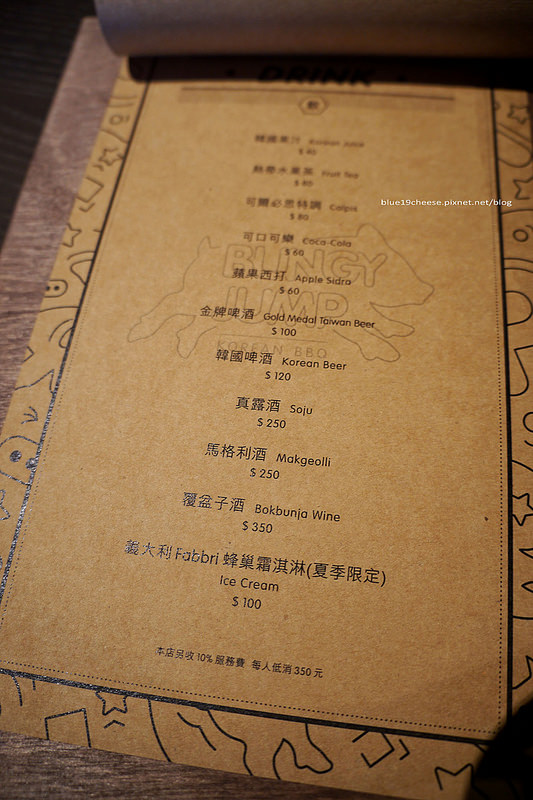 DRINK
飲
韓國果汁 Korean Juice
$ 80
熱帶水果茶 Fruit Tea
$ 80
可爾必思特調 Calpis
$ 80
blue19cheese.pixnet.net/blog
可口可樂 Coca-Cola
$ 60
蘋果西打 Apple Sidra
$ 60
BUNGY
JUMP
KOREAN BBQ
金牌啤酒 Gold Medal Taiwan Beer
$ 100
韓國啤酒 Korean Beer
$ 120
真露酒 Soju
$ 250
馬格利酒 Makgeolli
$ 250
覆盆子酒 Bokbunja Wine
$ 350
義大利 Fabbri 蜂巢霜淇淋(夏季限定)
Ice Cream
$ 100
本店另收 10% 服務費 每人低消 350 元